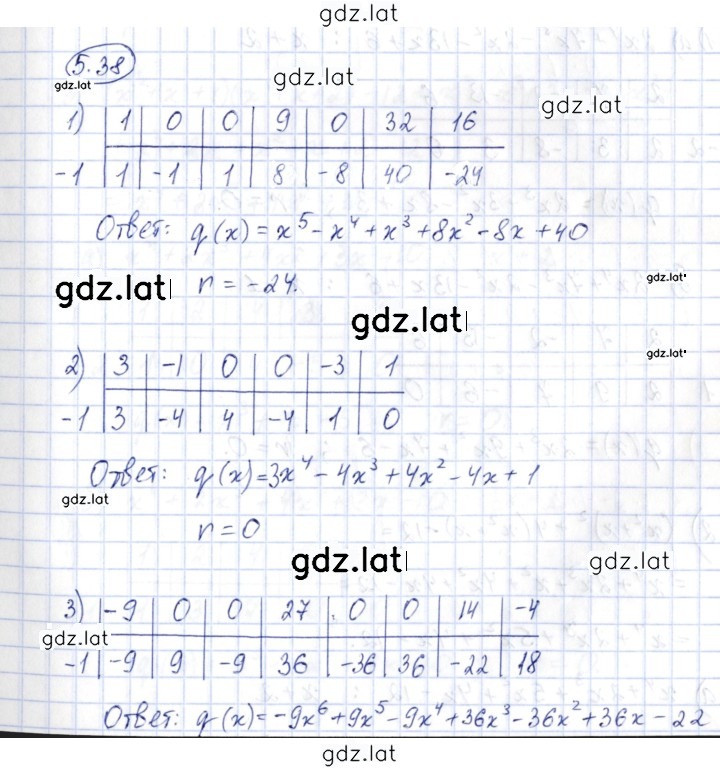 gdz.lat
5.38
gdz.lat
gdz.lat
gdz.lat
1) | 1 | 0 | 0 | 9 | 0 | 32 | 16
-1 | 1 | -1 | 1 | 8 | -8 | 40 | -24
Ответ: q(x) = x⁵ - x⁴ + x³ + 8x² - 8x + 40
gdz.lat
r = -24.
gdz.lat
gdz.lat
gdz.lat
2) | 3 | -1 | 0 | 0 | -3 | 1
-1 | 3 | -4 | 4 | -4 | 1 | 0
Ответ: q(x) = 3x⁴ - 4x³ + 4x² - 4x + 1
gdz.lat
r = 0
gdz.lat
gdz.lat
3) | -9 | 0 | 0 | 27 | 0 | 0 | 14 | -4
gdz.lat
-1 | -9 | 9 | -9 | 36 | -36 | 36 | -22 | 18
Ответ: q(x) = -9x⁶ + 9x⁵ - 9x⁴ + 36x³ - 36x² + 36x - 22
gdz.lat